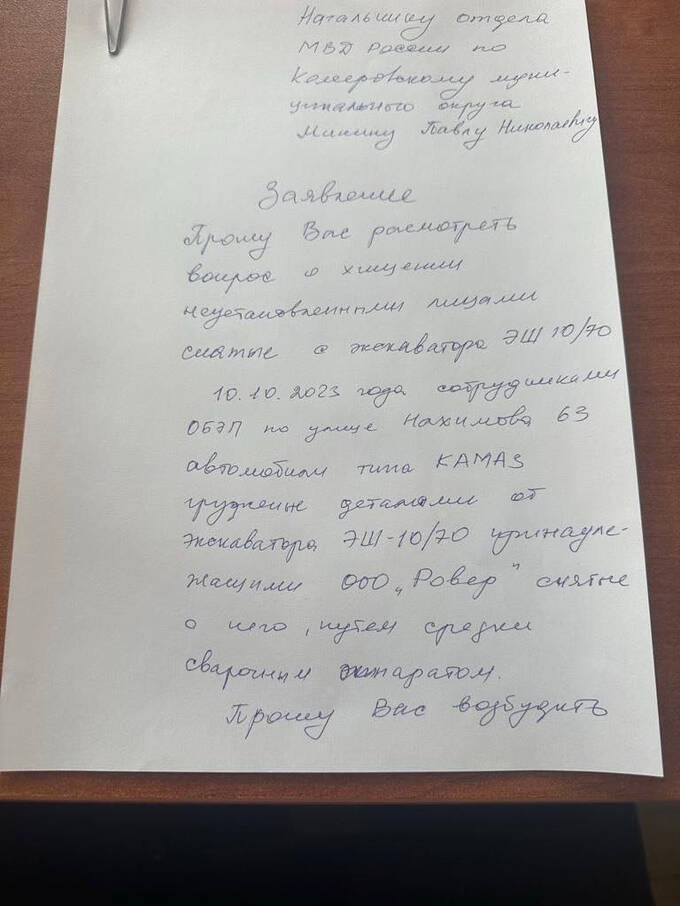 Начальнику отдела
МВД России по
Кемеровскому муни-
ципального округа
Минину Павлу Николаевичу
Заявление
Прошу Вас расмотреть
вопрос о хищении
неустановленными лицами
снятые с экскаватора ЭШ 10/70
10.10.2023 года сотрудниками
ОБЭП по улице Нахимова 63
автомобили типа КАМАЗ
груженые деталями от
экскаватора ЭШ-10/70 принадле-
жащими ООО „Ровер" снятые
с него, путем срезки
сварочным аппаратом.
Прошу Вас возбудить